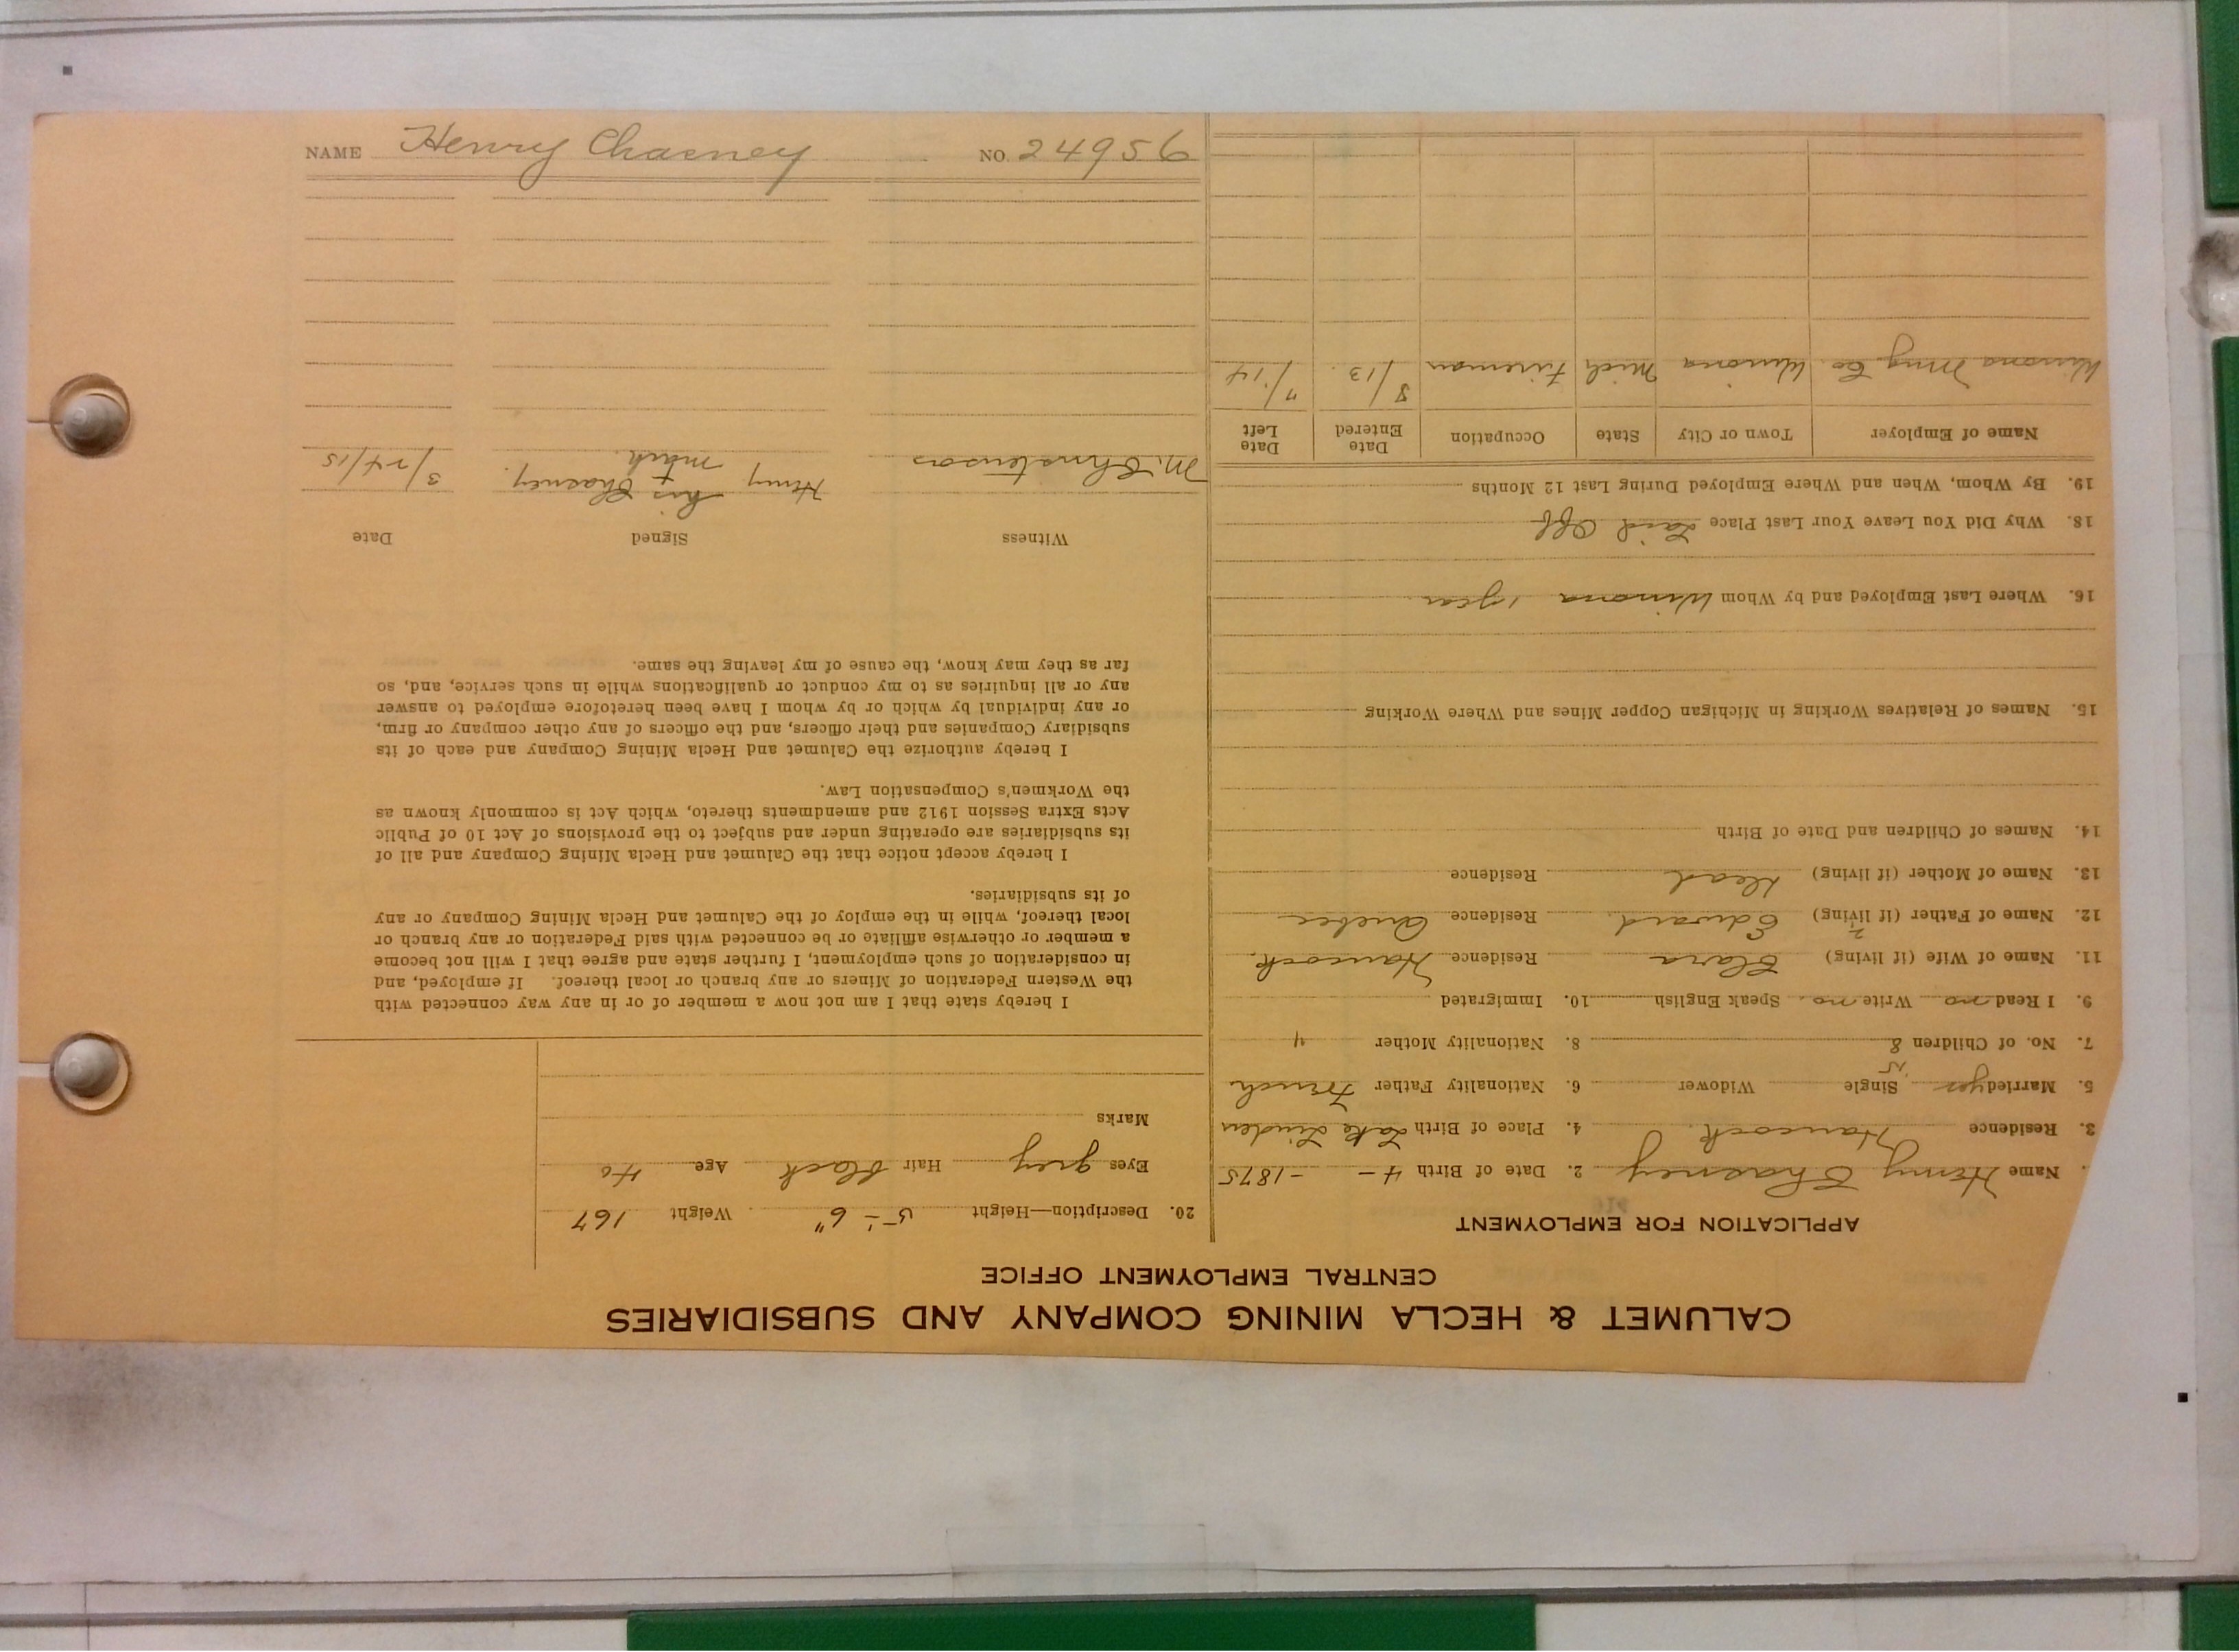 NAME Henry Chasney NO. 24956
CALUMET & HECLA MINING COMPANY AND SUBSIDIARIES
CENTRAL EMPLOYMENT OFFICE
APPLICATION FOR EMPLOYMENT
. Name Henry Chasney 2. Date of Birth 4 - - 1875
3. Residence Hancock. 4. Place of Birth Lake Linden
5. Married yes Single Widower 6. Nationality Father French
7. No. of Children 8 8. Nationality Mother "
9. I Read no Write no. Speak English 10. Immigrated
11. Name of Wife (if living) Clara Residence Hancock.
12. Name of Father (if living) Edward. Residence Quebec
13. Name of Mother (if living) dead Residence
14. Names of Children and Date of Birth
15. Names of Relatives Working in Michigan Copper Mines and Where Working
16. Where Last Employed and by Whom Winona 1 year.
18. Why Did You Leave Your Last Place Laid Off
19. By Whom, When and Where Employed During Last 12 Months
Name of Employer Town or City State Occupation Date Entered Date Left
Winona Mng. Co. Winona Mich Fireman 8/13. "/14
20. Description—Height 5 - 6" Weight 167
Eyes grey Hair black Age 40
Marks
I hereby state that I am not now a member of or in any way connected with
the Western Federation of Miners or any branch or local thereof. If employed, and
in consideration of such employment, I further state and agree that I will not become
a member or otherwise affiliate or be connected with said Federation or any branch or
local thereof, while in the employ of the Calumet and Hecla Mining Company or any
of its subsidiaries.
I hereby accept notice that the Calumet and Hecla Mining Company and all of
its subsidiaries are operating under and subject to the provisions of Act 10 of Public
Acts Extra Session 1912 and amendments thereto, which Act is commonly known as
the Workmen's Compensation Law.
I hereby authorize the Calumet and Hecla Mining Company and each of its
subsidiary Companies and their officers, and the officers of any other company or firm,
or any individual by which or by whom I have been heretofore employed to answer
any or all inquiries as to my conduct or qualifications while in such service, and, so
far as they may know, the cause of my leaving the same.
Witness Signed Date
M. Christenson Henry his + mark. Chasney. 3/24/15